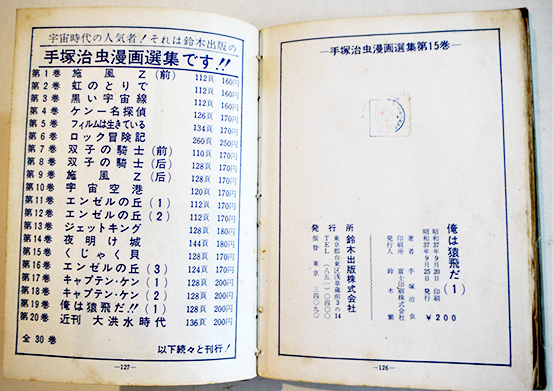 宇宙時代の人気者!それは鈴木出版の
手塚治虫漫画選集です!!
第1巻 施風Z(前) 112頁 160円
第2巻 虹のとりで 112頁 160円
第3巻 黒い宇宙線 112頁 160円
第4巻 ケン一名探偵 126頁 170円
第5巻 フィルムは生きている 134頁 170円
第6巻 ロック冒険記 260頁 250円
第7巻 双子の騎士(前) 110頁 170円
第8巻 双子の騎士(后) 128頁 170円
第9巻 施風Z(后) 128頁 170円
第10巻 宇宙空港 120頁 170円
第11巻 エンゼルの丘(1) 112頁 170円
第12巻 エンゼルの丘(2) 112頁 170円
第13巻 ジェットキング 128頁 170円
第14巻 夜明け城 144頁 180円
第15巻 くじゃく貝 128頁 170円
第16巻 エンゼルの丘(3) 124頁 170円
第17巻 キャプテン・ケン(1) 128頁 200円
第18巻 キャプテン・ケン(2) 128頁 200円
第19巻 俺は猿飛だ!!(1) 128頁 200円
第20巻 近刊 大洪水時代 136頁 200円
全30巻 以下続々と刊行!
—127—
—手塚治虫漫画選集第15巻—
俺は猿飛だ(1)
昭和37年9月20日 印刷
昭和37年9月25日 発行
¥200
著者 手塚治虫
発行人 鈴木繁
印刷所 富士印刷株式会社
発行所 鈴木出版株式会社
東京都台東区浅草蔵前3の14
TEL (851)0051
振替 東京 34090
—126—